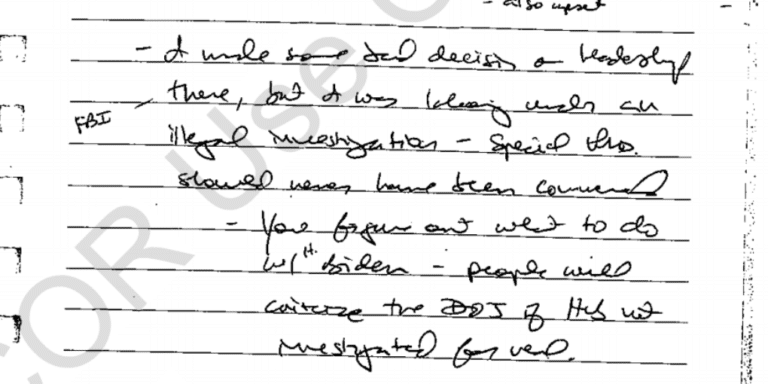 - also upset
- I made some bad decisions on leadership
there, but I was laboring under an
FBI
illegal investigation - Special Pros.
should never have been commenced
- You figure out what to do
w/ H. Biden - people will
criticize the DOJ if He's not
investigated for real.
FOR Use O